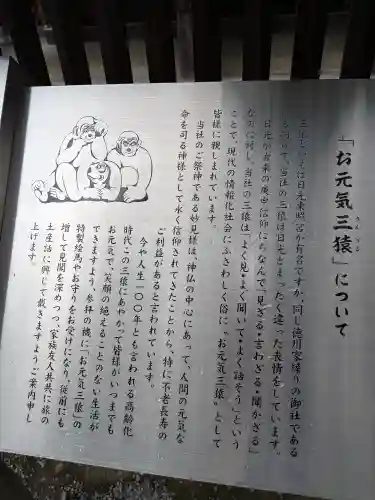 「お元気三猿」について
さんえん
三猿といえば日光東照宮が有名ですが、同じ徳川家縁りの御社である
当社の三猿は日光とまったく違った表情をしています。
日光が古来の庚申信仰にちなんで「見ざる・言わざる・聞かざる」
なのに対し、当社の三猿は「よく見・よく聞いて・よく話そう」という
ことで、現代の情報化社会にふさわしく俗に「お元気三猿」として
皆様に親しまれています。
当社のご祭神である妙見様は、神仏の中心にあって、人間の元気な
命を司る神様として永く信仰されてきたことから、特に不老長寿の
ご利益があると言われています。
今や人生一〇〇年とも言われる高齢化
時代この三猿にあやかって皆様がいつまでも
お元気で、笑顔の絶えることのない生活が
できますよう、参拝の機に「お元気三猿」の
特製絵馬やお守りをお受けになり、従前にも
増して見聞を深めつつ、家族友人共共に旅の
土産話に興じて戴きますようご案内申し
上げます。